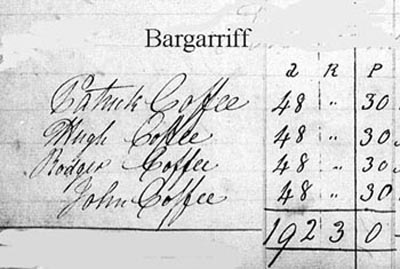 Bargarriff
a R P
Patrick Coffee 48 " 30
Hugh Coffee 48 " 30
Rodger Coffee 48 " 30
John Coffee 48 " 30
192 3 0